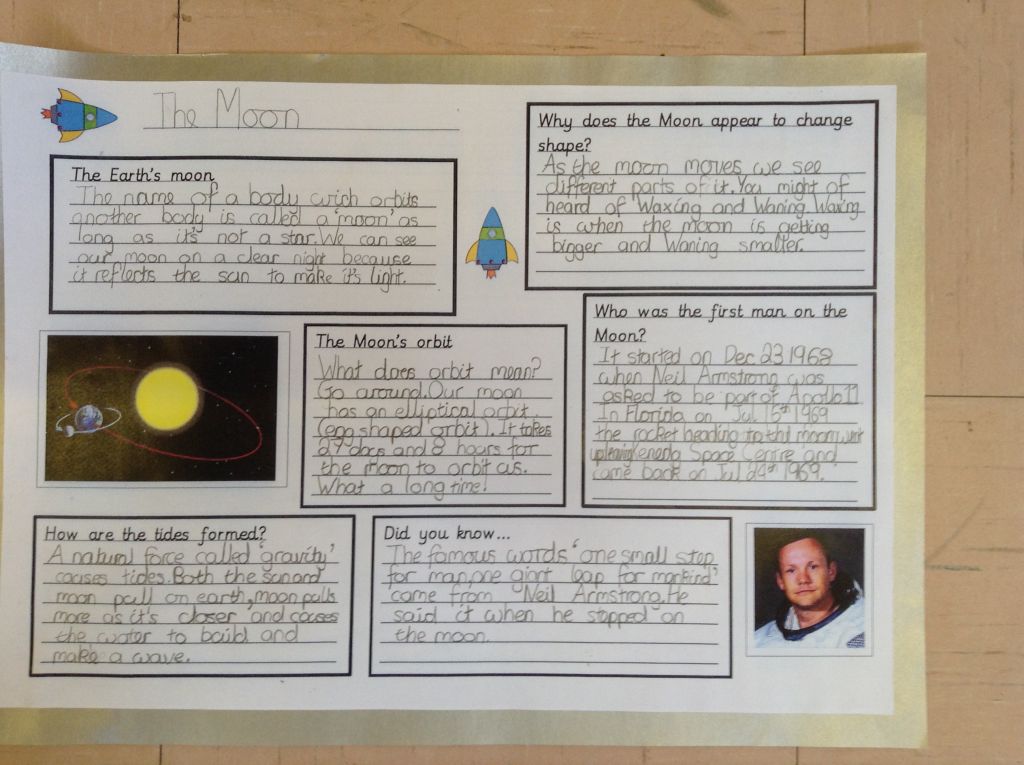 The Moon
The Earth's moon
The name of a body wich orbits
another body is called a 'moon' as
long as it's not a star. We can see
our moon on a clear night because
it reflects the sun to make it's light.
Why does the Moon appear to change
shape?
As the moon moves we see
different parts of it. You might of
heard of Waxing and Waning. Waxing
is when the moon is getting
bigger and Waning smaller.
The Moon's orbit
What does orbit mean?
Go around. Our moon
has an elliptical orbit
(egg shaped orbit). It takes
27 days and 8 hours for
the Moon to orbit us.
What a long time!
Who was the first man on the
Moon?
It started on Dec 23 1968
when Neil Armstrong was
asked to be part of Apollo 11
In Florida on Jul 16th 1969
the rocket heading to the moon
Space Centre and
came back on Jul 24th 1969.
How are the tides formed?
A natural force called 'gravity'
causes tides. Both the sun and
moon pull on earth, moon pulls
more as it's closer and causes
the water to build and
make a wave.
Did you know...
The famous words 'one small step
for man, one giant leap for mankind'
came from Neil Armstrong. He
said it when he stopped on
the moon.